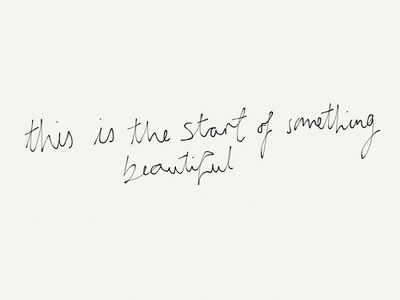 this is the start of something
beautiful